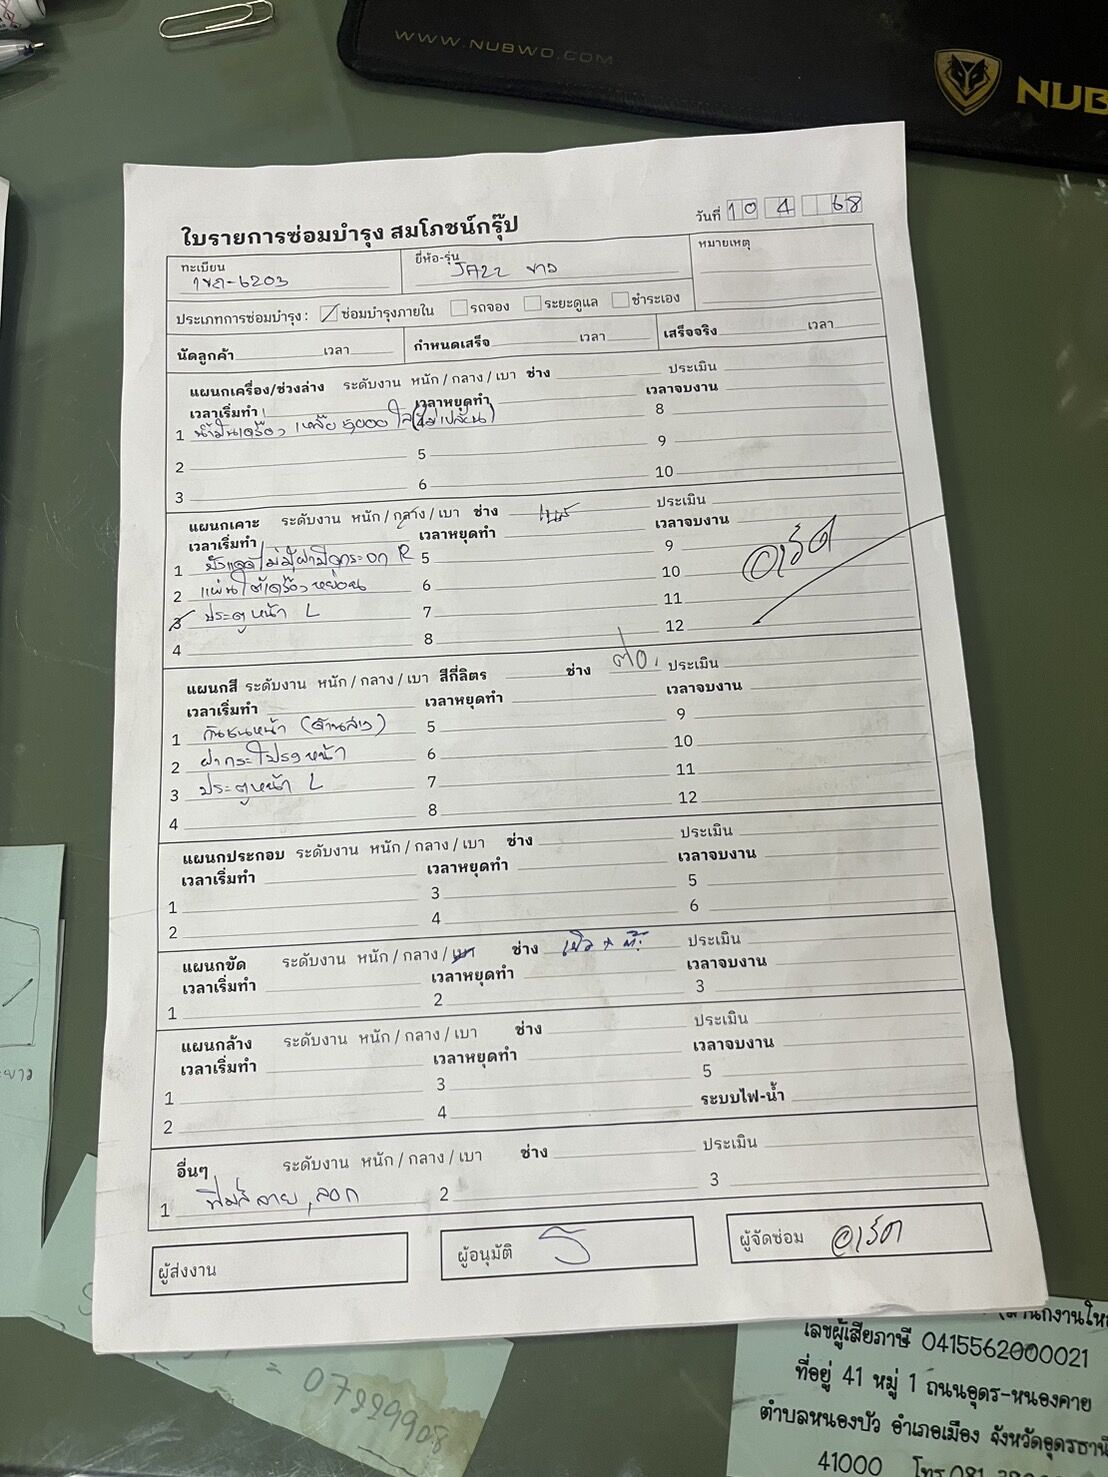 WWW.NUBWO.COM
NUB
ใบรายการซ่อมบำรุง สมโภชน์กรุ๊ป
วันที่ 10 4 68
ทะเบียน
-6203
ยี่ห้อ-รุ่น
JAZZ ขาว
หมายเหตุ
ประเภทการซ่อมบำรุง : ซ่อมบำรุงภายใน รถจอง ระยะดูแล ชำระเอง
นัดลูกค้า เวลา กำหนดเสร็จ เวลา เสร็จจริง เวลา
แผนกเครื่อง/ช่วงล่าง ระดับงาน หนัก / กลาง / เบา ช่าง ประเมิน
เวลาเริ่มทำ เวลาหยุดทำ เวลาจบงาน
1 น้ำมันเครื่อง เหลือ 5,000 โล (ไม่เปลี่ยน) 8
2 5 9
3 6 10
แผนกเคาะ ระดับงาน หนัก / กลาง / เบา ช่าง ประเมิน
เวลาเริ่มทำ เวลาหยุดทำ เวลาจบงาน
1 R 5 9
2 แผ่นใต้เครื่อง หย่อน 6 10
3 ประตูหน้า L 7 11
4 8 12
แผนกสี ระดับงาน หนัก / กลาง / เบา สีกี่ลิตร ช่าง ต่อ. ประเมิน
เวลาเริ่มทำ เวลาหยุดทำ เวลาจบงาน
1 กันชนหน้า (ด้านล่าง) 5 9
2 ฝากระโปรงหน้า 6 10
3 ประตูหน้า L 7 11
4 8 12
แผนกประกอบ ระดับงาน หนัก / กลาง / เบา ช่าง ประเมิน
เวลาเริ่มทำ เวลาหยุดทำ เวลาจบงาน
1 3 5
2 4 6
แผนกขัด ระดับงาน หนัก / กลาง / เบา ช่าง ประเมิน
เวลาเริ่มทำ เวลาหยุดทำ เวลาจบงาน
1 2 3
แผนกล้าง ระดับงาน หนัก / กลาง / เบา ช่าง ประเมิน
เวลาเริ่มทำ เวลาหยุดทำ เวลาจบงาน
1 3 5
2 4 ระบบไฟ-น้ำ
อื่นๆ ระดับงาน หนัก / กลาง / เบา ช่าง ประเมิน
1 ฟิมส์ลาย, ลอก 2 3
ผู้ส่งงาน
ผู้อนุมัติ
ผู้จัดซ่อม
= 07229908
เลขผู้เสียภาษี 0415562000021
ที่อยู่ 41 หมู่ 1 ถนนอุดร-หนองคาย
ตำบลหนองบัว อำเภอเมือง จังหวัดอุดรธานี
41000 โทร.081